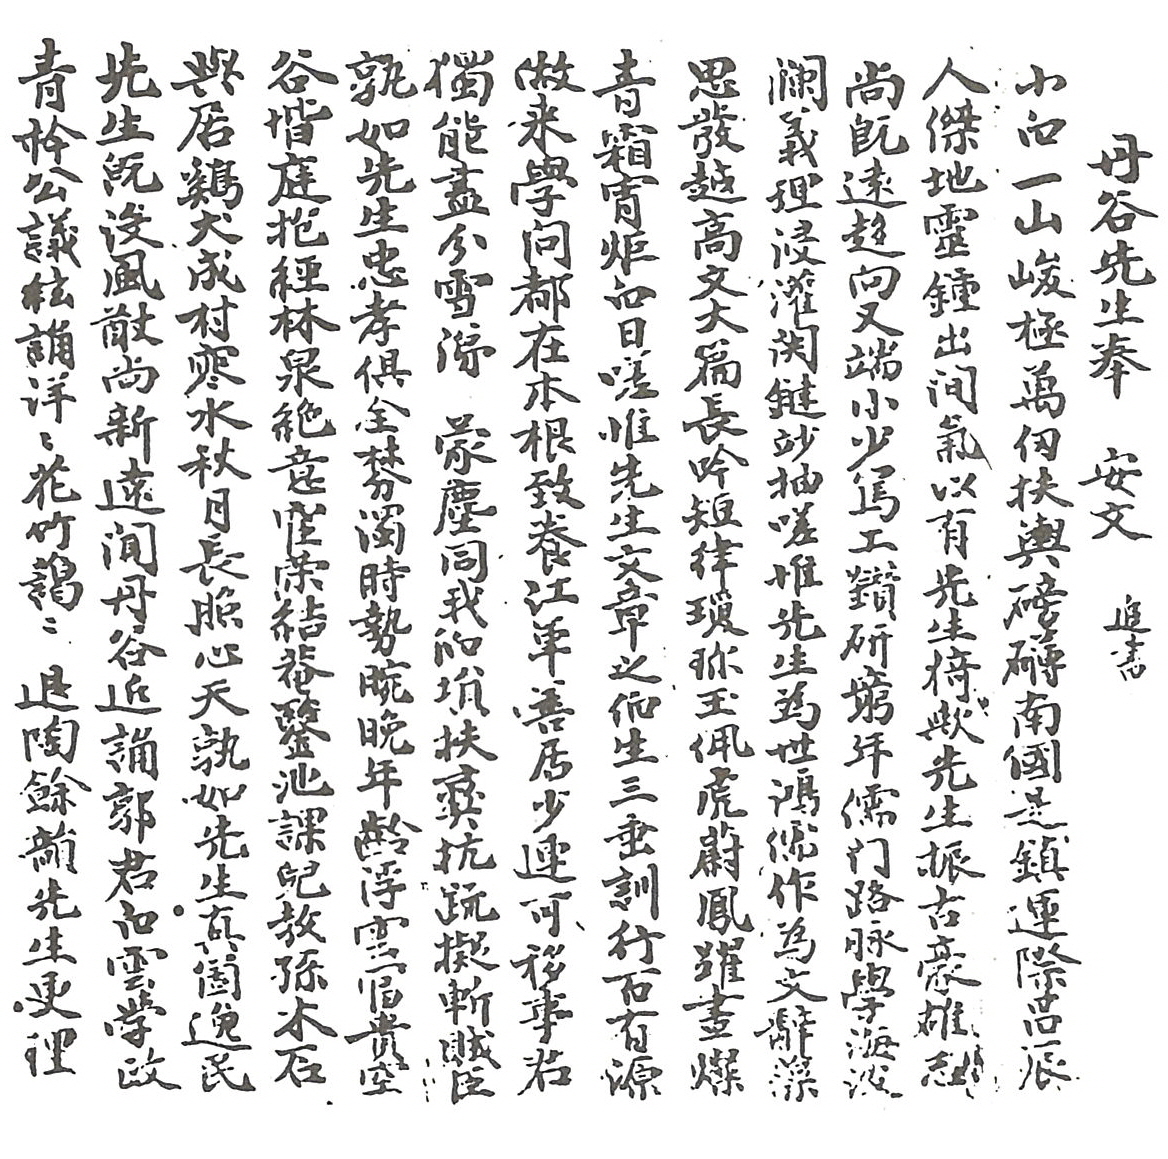 丹谷先生奉 安文 追書
小白一山峻極萬仞扶輿磅礴南國是鎮運際昌辰
人傑地靈鍾出间氣以有先生猗欤先生振古豪雄志
尚旣遠趍向又端小少篤工鑽研窮年儒门路脉學海波
瀾義理浸灌関鍵妙抽嗟惟先生為世鴻儒作為文辭藻
思發越高文大篇長吟短律瓊琚玉佩虎蔚鳳躍晝燦
青霜宵炬白日嗟惟先生文章之伯生三垂訓行百有源
做来學问都在本根致養江革善居少連可移事君
獨能盡分雪涕 蒙塵同我伯埙扶彛抗䟽擬斬賊臣
孰如先生忠孝俱全棼濁時勢晼晚年齡浮雲冨貴空
谷堦庭抱經林泉絶意官榮結菴鑿池課兒教孫木石
與居鷄犬成村寒水秋月長照心天孰如先生真箇逸民
先生旣没風猷尚新遠聞丹谷近誦郭君白雲学政
青衿公議絃誦洋〻花竹藹〻 退陶餘韻先生更理